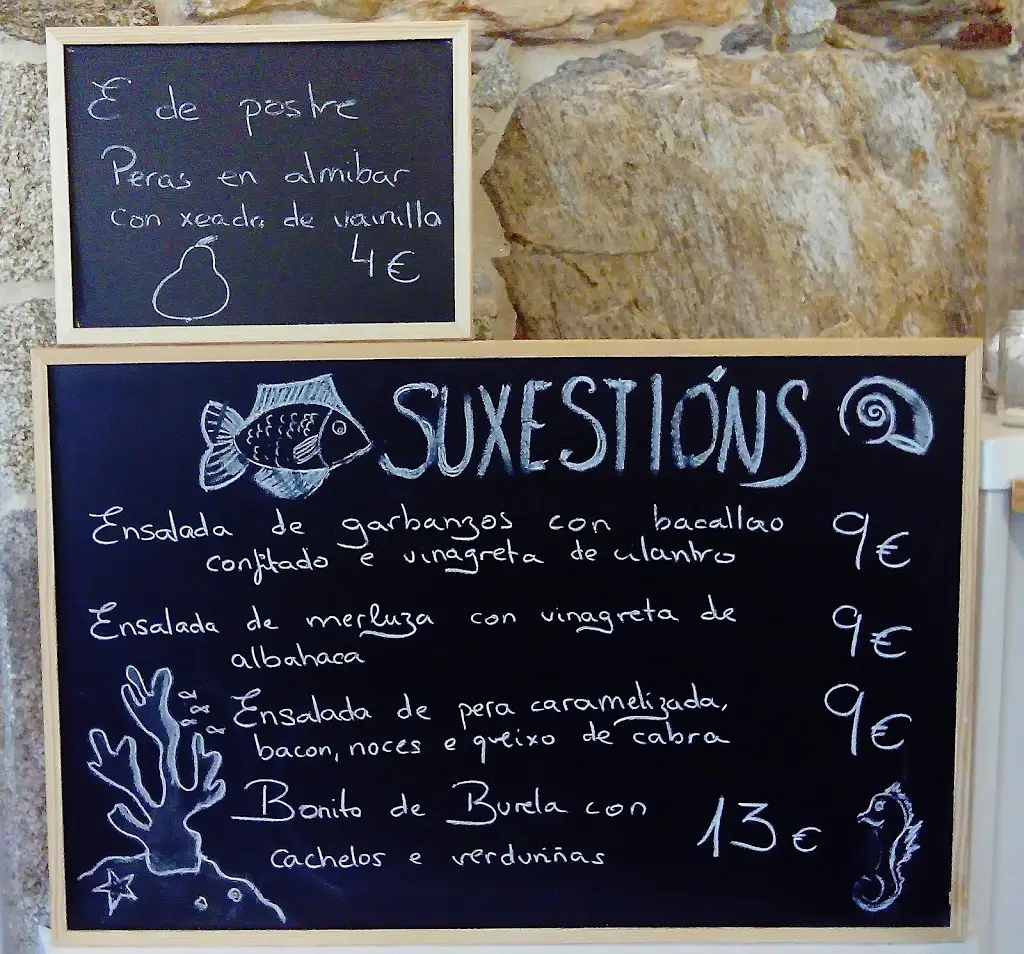 E de postre
Peras en almibar
con xeado de vainilla
4€
SUXESTIÓNS
Ensalada de garbanzos con bacallao 9€
confitado e vinagreta de cilantro
Ensalada de merluza con vinagreta de 9€
albahaca
Ensalada de pera caramelizada, 9€
bacon, noces e queixo de cabra
Bonito de Burela con 13€
cachelos e verduriñas